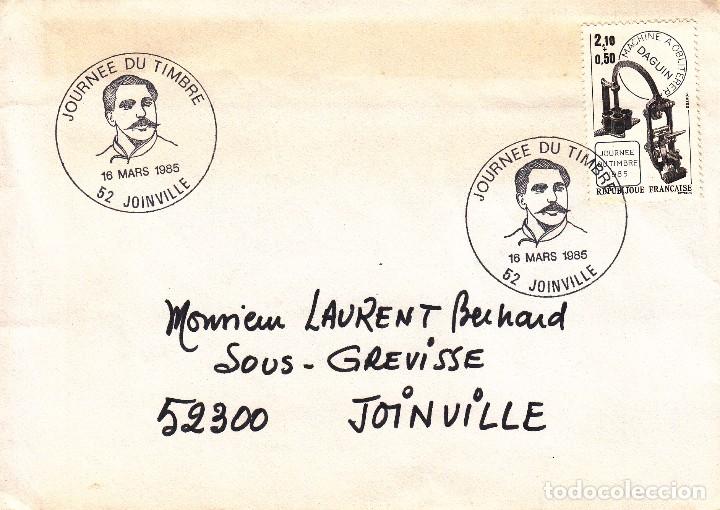 JOURNEE DU TIMBRE
16 MARS 1985
52 JOINVILLE
2,10
+0,50
MACHINE A OBLITERER
DAGUIN
JOURNEE
DU TIMBRE
1985
REPUBLIQUE FRANÇAISE
JOURNEE DU TIMBRE
16 MARS 1985
52 JOINVILLE
Monsieur LAURENT Bernard
SOUS-GREVISSE
52300 JOINVILLE
todocoleccion